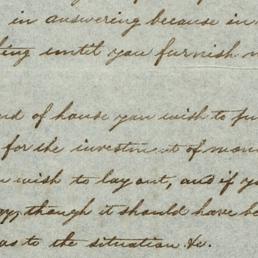 in answering because in
until you furnish
of house you wish to
for the investment of
wish to lay out, and if
though it should have be
as to the situation &c.